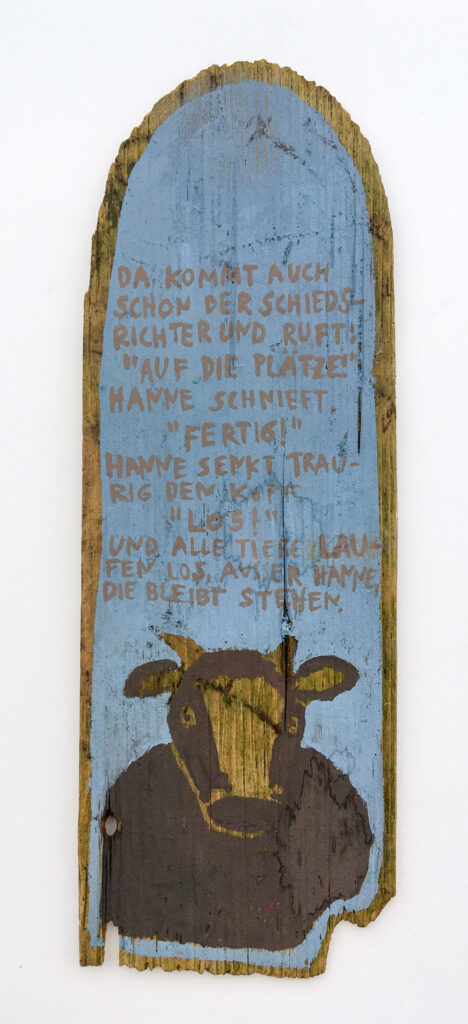 DA KOMMT AUCH
SCHON DER SCHIEDS-
RICHTER UND RUFT:
"AUF DIE PLÄTZE!"
HANNE SCHNIEFT.
"FERTIG!"
HANNE SENKT TRAU-
RIG DEN KOPF.
"LOS!"
UND ALLE TIERE LAU-
FEN LOS, AUSSER HANNE,
DIE BLEIBT STEHEN.